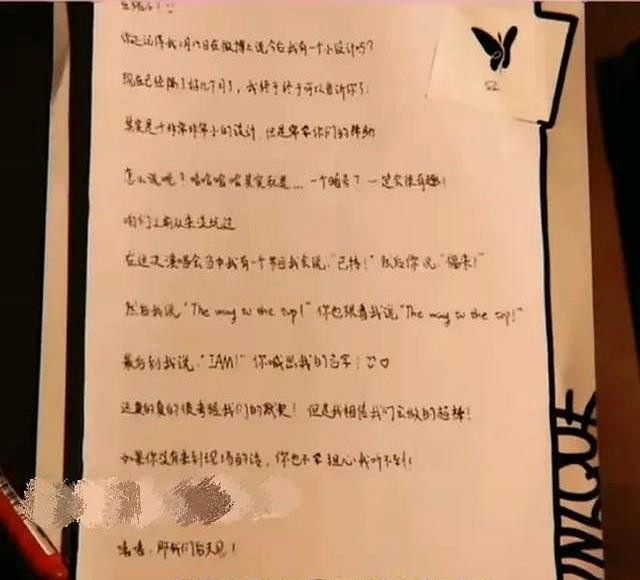 你还记得我2月17日在微博上说今台我有一个小设计吗？
现在已经隔了好几个月了，我终于终于可以告诉你了：
其实是个非常非常小的设计，但是需要你们的帮助
怎么说呢？哈哈哈哈其实就是…一个暗号？一定会很有趣！
咱们之前从来没玩过
在这次演唱会当中我有一个节目我会说，"已转！"然后你说"福来！"
然后我说"The way to the top!"你也跟着我说"The way to the top!"
最后到我说，"I AM!"你喊出我的名字！
这真的真的很考验我们的默契！但是我相信我们会做的超棒！
如果你没有来到现场的话，你也不要担心我听不到！
嘻嘻，那我们后天见！
UNIQUE